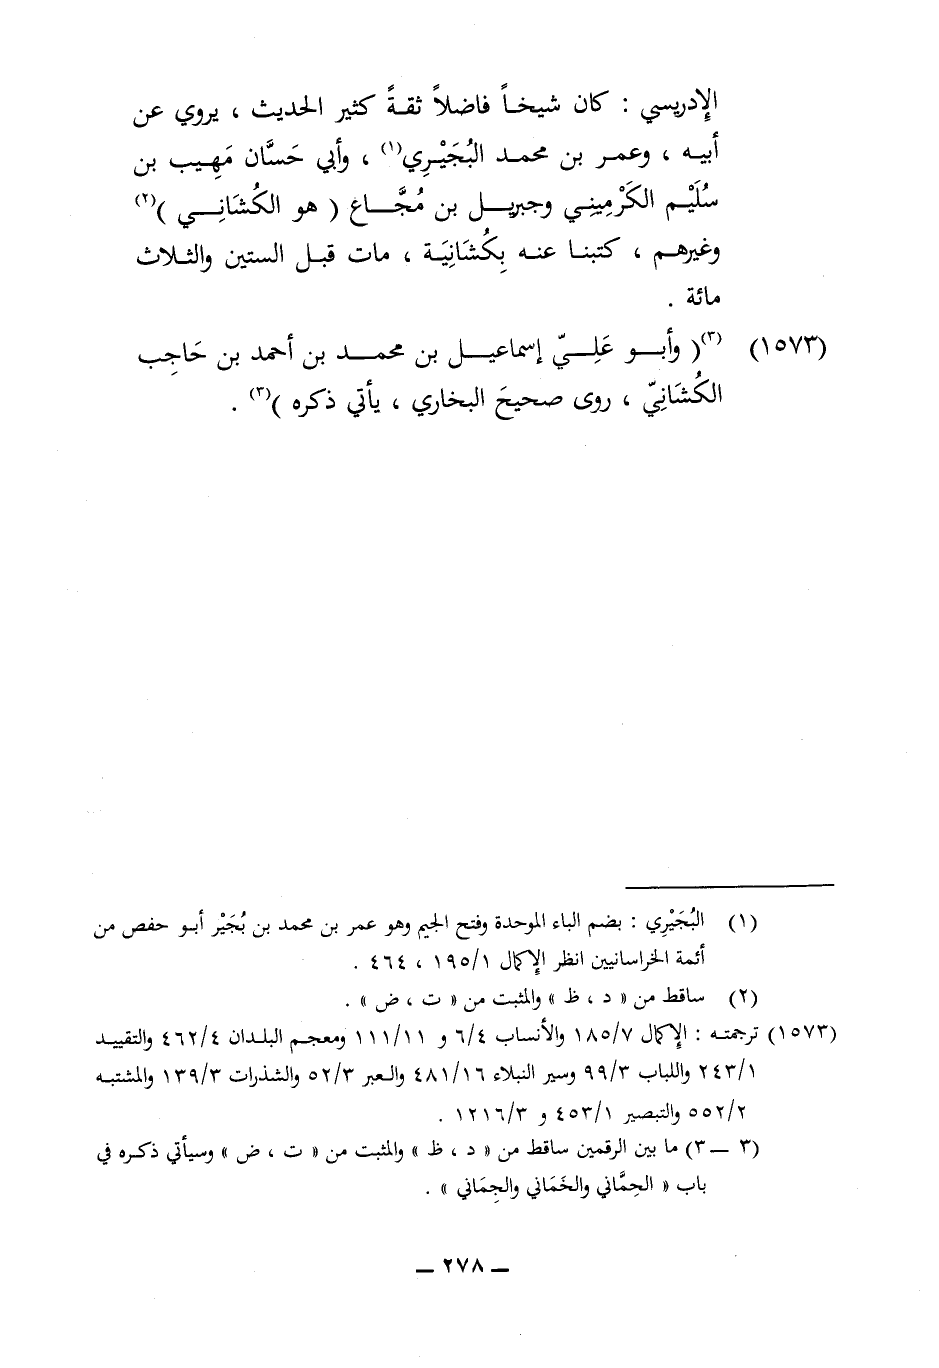 الإدريسي : كان شيخاً فاضلاً ثقةً كثير الحديث ، يروي عن
أبيه ، وعمر بن محمد البُجَيْرِي(١) ، وأبي حَسَّان مَهِيب بن
سُلَيْم الكَرْمِينِي وجبريل بن مُجَّاع ( هو الكُشَانِي )(٢)
وغيرهم ، كتبنا عنه بِكُشَانِيَة ، مات قبل الستين والثلاث
مائة .
(١٥٧٣) (٣)( وأبو عَلِيّ إسماعيل بن محمد بن أحمد بن حَاجِب
الكُشَانِيّ ، روى صحيحَ البخاري ، يأتي ذكره )(٣) .
(١) البُجَيْرِي : بضم الباء الموحدة وفتح الجيم وهو عمر بن محمد بن بُجَيْر أبو حفص من
أئمة الخراسانيين انظر الإكمال ١٩٥/١ ، ٤٦٤ .
(٢) ساقط من « د ، ظ » والمثبت من « ت ، ض » .
(١٥٧٣) ترجمته : الإكمال ١٨٥/٧ والأنساب ٦/٤ و ١١١/١١ ومعجم البلدان ٤٦٢/٤ والتقييد
٢٤٣/١ واللباب ٩٩/٣ وسير النبلاء ٤٨١/١٦ والعبر ٥٢/٣ والشذرات ١٣٩/٣ والمشتبه
٥٥٢/٢ والتبصير ٤٥٣/١ و ١٢١٦/٣ .
(٣ ــ ٣) ما بين الرقمين ساقط من « د ، ظ » والمثبت من « ت ، ض » وسيأتي ذكره في
باب « الحِمَّاني والخَمَاني والجِمَاني » .
ــ ٢٧٨ ــ